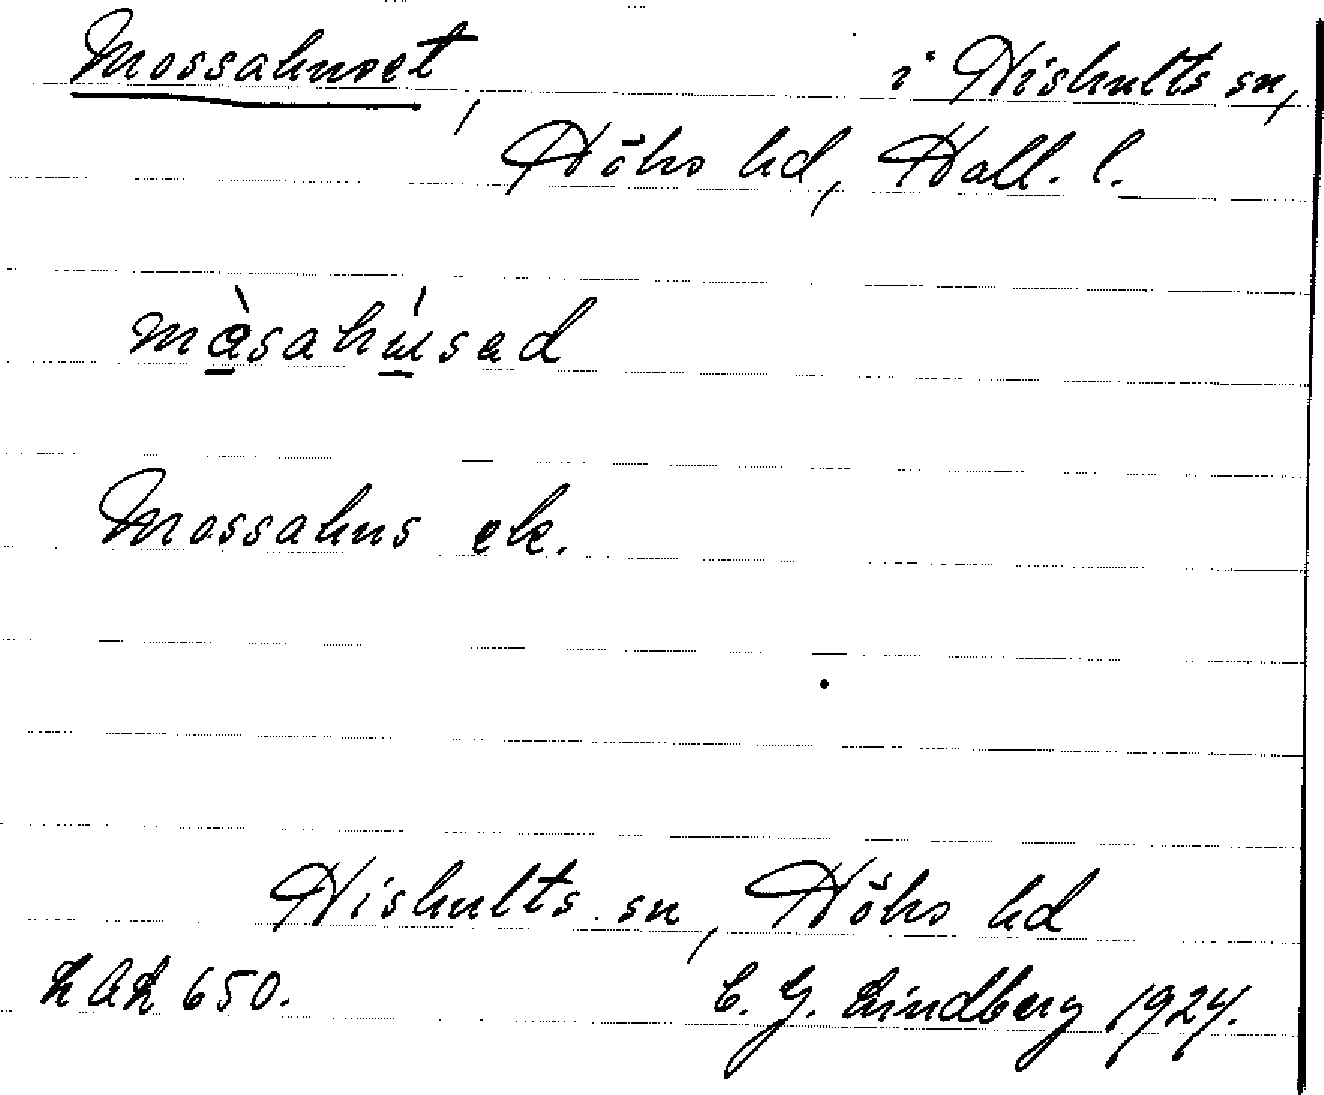 Mossahuset, i Hishults sn,
Höks hd, Hall. l.
màsahúsad
Mossahus ek.
Hishults sn, Höks hd
LAL 650. C. G. Lindberg 1924.